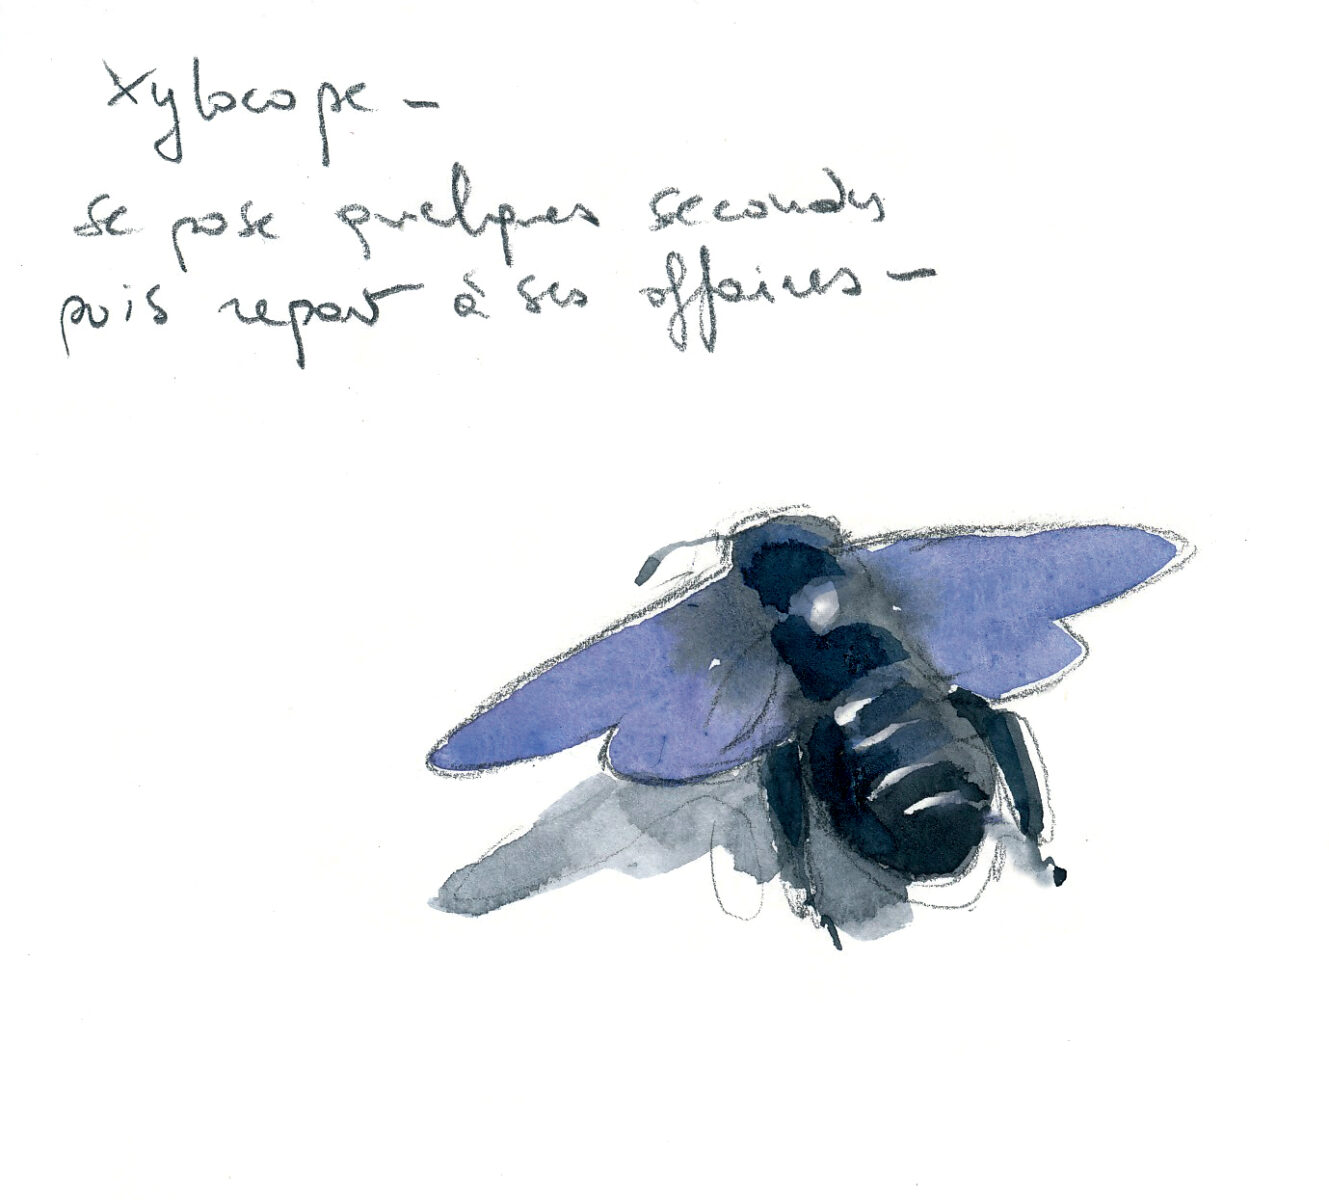 Xylocope –
se pose quelques secondes
puis repart à ses affaires –